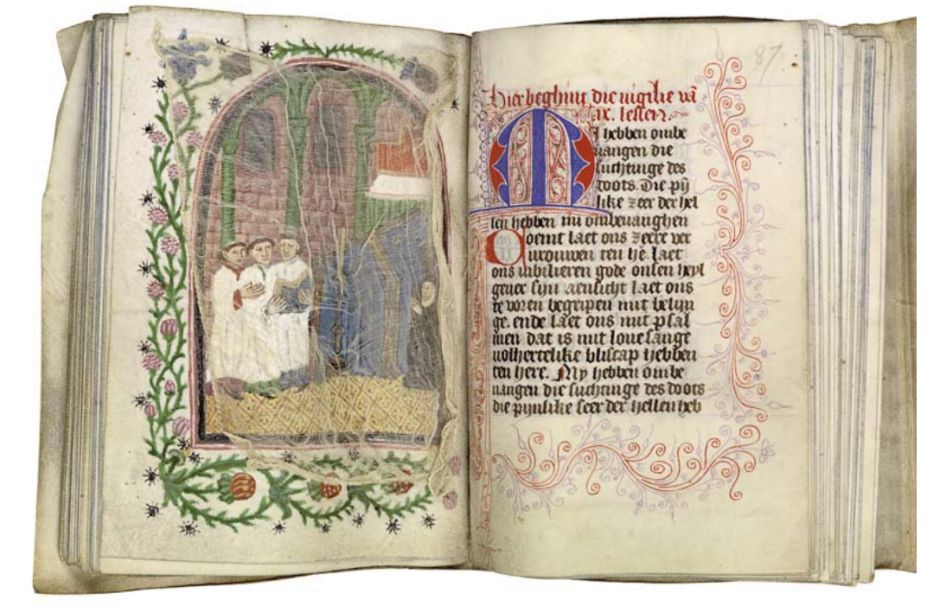 87
Hier beghint die vigilie vā
ix. lessen.
Mi hebben ombe
vangen die
suchtinge des
doots. Die pij
like zeer der hel
len hebben mi ombevanghen
Coemt laet ons zeere ver
vrouwen ten hē. laet
ons iubilieren gode onsen heyl
gever sijn aensicht laet ons
te voren begripen mit belijn
ge. ende laet ons mit psal
men dat is mit love sange
volhertelike bliscap hebben
ten here. My hebben ombe
vangen die suchtinge des doots
die pijnlike seer der hellen heb